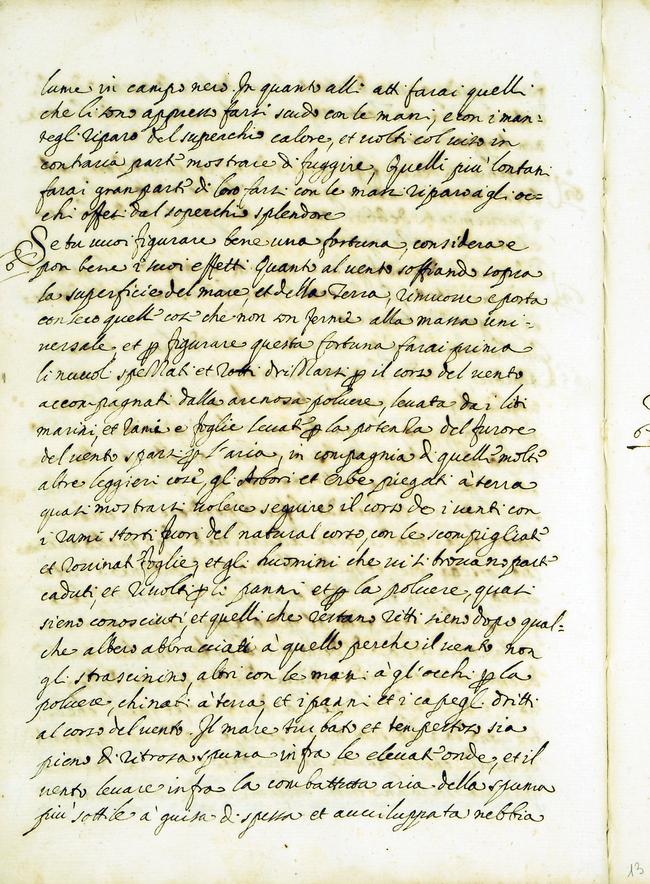 lume in campo nero. In quanto alli atti farai quelli
che li sono appresso farsi scudo con le mani, e con i man=
tegli riparo del superchio calore, et volti col viso in
contraria parte mostrare di fuggire, Quelli più lontani
farai gran parte di loro farsi con le mani riparo agli oc=
chi offesi dal soperchio splendore
Se tu vuoi figurare bene una fortuna, considera e
pon bene i suoi effetti Quanto al vento soffiando sopra
la superficie del mare, et della Terra, rimuove e porta
con seco quelle cose che non son ferme alla massa uni=
versale, et p figurare questa fortuna farai prima
li nuvoli spezzati et rotti drizzarsi p il corso del vento
accompagnati dalla arenosa polvere, levata da i liti
marini, et rami e foglie levate p la potenza del furore
del vento sparsi p l'aria, in compagnia di quelle molte
altre leggieri cose, gli Arbori et Erbe piegati à terra
quasi mostrarsi volere seguire il corso de i venti con
i rami storti fuori del natural corso, con le scompigliate
et rovinate foglie, et gli huomini che vi si trovano parte
caduti, et rivolti p li panni et p la polvere, quasi
sieno conosciuti et quelli che restano ritti sieno dopo qual=
che albero abbracciati à quello perche il vento non
gli strascinino, altri con le mani à gl'occhi p la
polvere, chinati à terra, et i panni et i capegli dritti
al corso del vento. Il mare turbato et tempestoso sia
pieno di ritrosa spuma infra le elevate onde, et il
vento levare infra la combattuta aria della spuma
più sottile à guisa di spessa et avviluppata nebbia
13